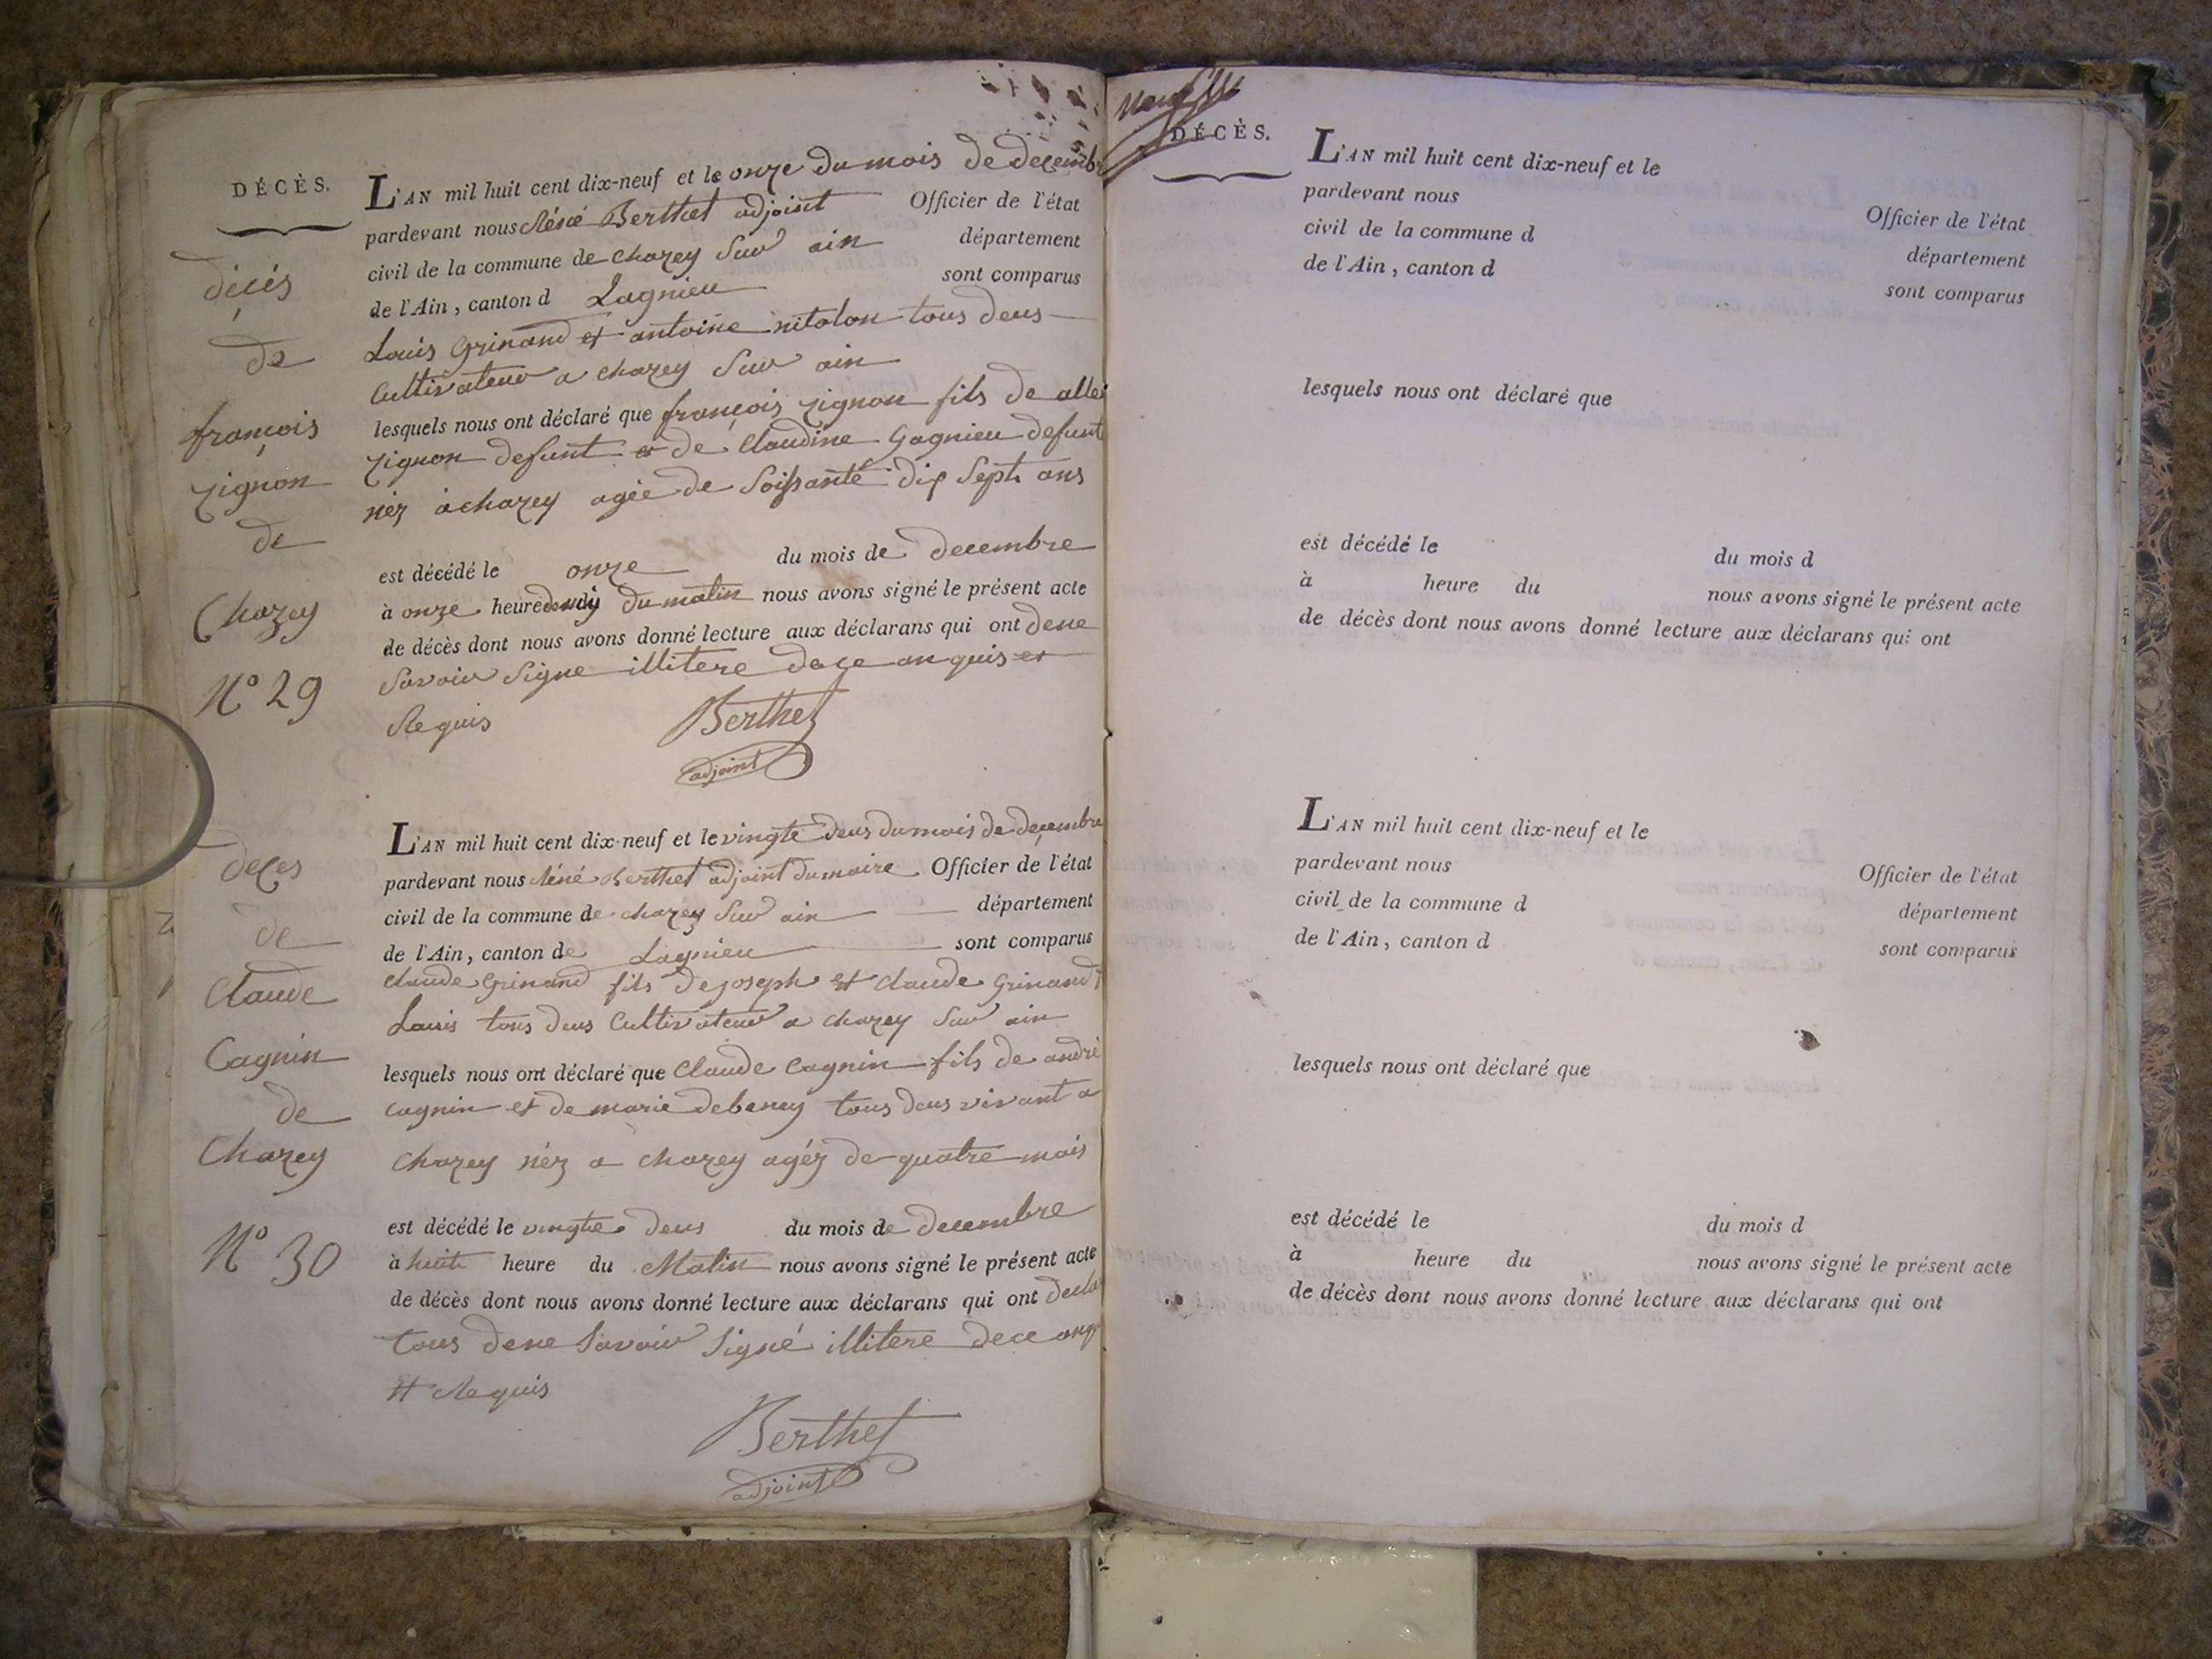 DÉCÈS.
décés
de
françois
zignon
de
Chazey
N° 29
L'AN mil huit cent dix-neuf et le onze du mois de décemb
pardevant nous Réné Berthet adjoint Officier de l'état
civil de la commune de chazey Sur ain département
de l'Ain, canton d Lagnieu sont comparus
Louis Grinand et antoine nitolon tous deus
Cultivateur a chazey Sur ain
lesquels nous ont déclaré que françois zignon fils de
zignon defunt et de Claudine Gagnieu defunt
néz à chazey agée de Soissante dix Sept ans
est décédé le onze du mois de decembre
à onze heure du matin nous avons signé le présent acte
de décès dont nous avons donné lecture aux déclarans qui ont dene
Savoir Signe illitere de ce anquis et
Requis
Berthet
adjoint
deces
de
Claude
Cagnin
de
Chazey
N° 30
L'AN mil huit cent dix-neuf et le vingte deus du mois de decembre
pardevant nous Réné Berthet adjoint du maire Officier de l'état
civil de la commune de chazey Sur ain département
de l'Ain, canton de Lagnieu sont comparus
Claude Grinand fils de joseph et Claude Grinand
Louis tous deus Cultivateur a chazey Sur ain
lesquels nous ont déclaré que Claude Cagnin fils de andré
cagnin et de marie debeney tous deus vivant a
Chazey néz a chazey agéz de quatre mois
est décédé le vingte deus du mois de decembre
à huit heure du Matin nous avons signé le présent acte
de décès dont nous avons donné lecture aux déclarans qui ont decla
tous dene Savoir Signé illitere de ce anq
et Requis
Berthet
adjoint
DÉCÈS.
L'AN mil huit cent dix-neuf et le
pardevant nous Officier de l'état
civil de la commune d département
de l'Ain, canton d sont comparus
lesquels nous ont déclaré que
est décédé le du mois d
à heure du nous avons signé le présent acte
de décès dont nous avons donné lecture aux déclarans qui ont
L'AN mil huit cent dix-neuf et le
pardevant nous Officier de l'état
civil de la commune d département
de l'Ain, canton d sont comparus
lesquels nous ont déclaré que
est décédé le du mois d
à heure du nous avons signé le présent acte
de décès dont nous avons donné lecture aux déclarans qui ont